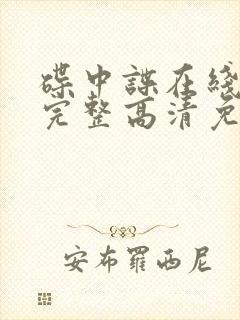 碟中諜在綫
完整高清免
安布羅西尼